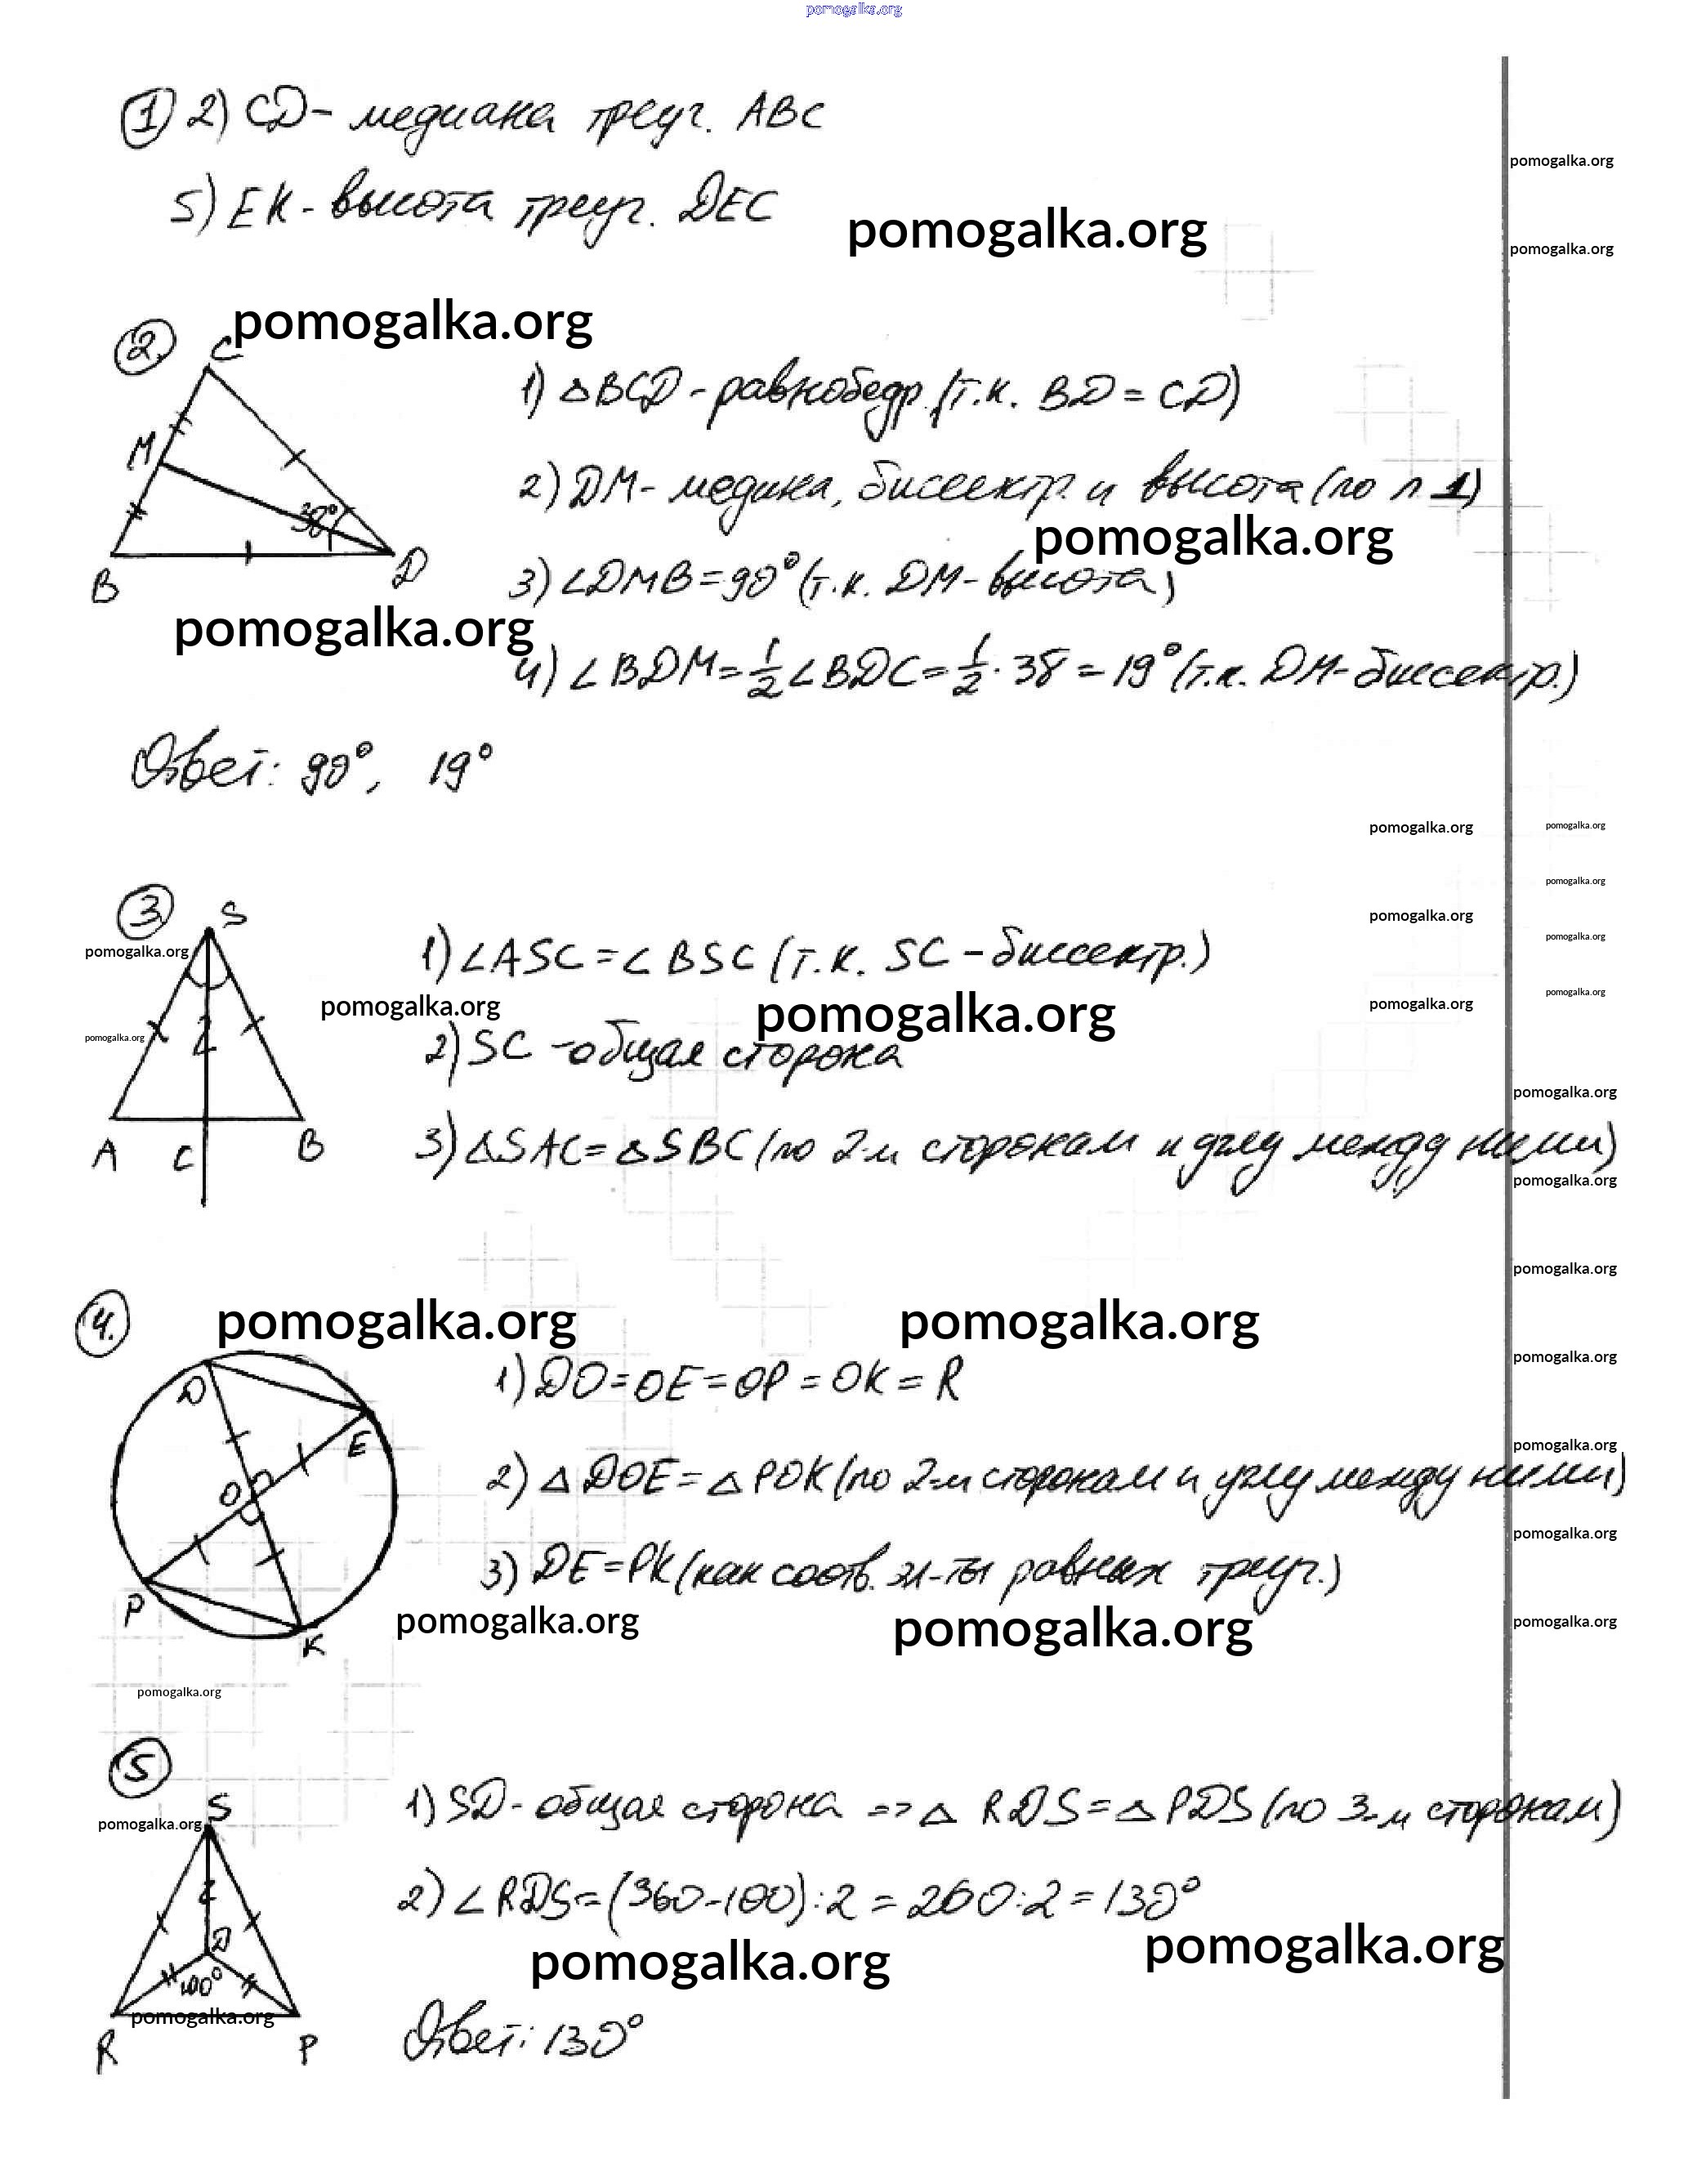 pomogalka.org
① 2) CD - медиана треуг. ABC
pomogalka.org
5) EK - высота треуг. DEC
pomogalka.org
pomogalka.org
pomogalka.org
② C
1) △BCD - равнобедр. (т.к. BD = CD)
M
2) DM - медиана, биссектр. и высота (по п 1)
38°
pomogalka.org
B D
3) ∠DMB = 90° (т.к. DM - высота)
pomogalka.org
4) ∠BDM = 1/2 ∠BDC = 1/2 · 38 = 19° (т.к. DM - биссектр.)
Ответ: 90°, 19°
pomogalka.org pomogalka.org
pomogalka.org
③ S
pomogalka.org
pomogalka.org
pomogalka.org
1) ∠ASC = ∠BSC (т.к. SC - биссектр.)
pomogalka.org
pomogalka.org
pomogalka.org
pomogalka.org
pomogalka.org
2) SC - общая сторона
pomogalka.org
pomogalka.org
A C B
3) △SAC = △SBC (по 2-м сторонам и углу между ними)
pomogalka.org
pomogalka.org
④.
pomogalka.org
pomogalka.org
pomogalka.org
D
1) DO = OE = OP = OK = R
E
pomogalka.org
O
2) △DOE = △POK (по 2-м сторонам и углу между ними)
pomogalka.org
P
3) DE = PK (как соотв. эл-ты равных треуг.)
pomogalka.org
pomogalka.org
pomogalka.org
K
pomogalka.org
⑤
S
1) SD - общая сторона => △ RDS = △ PDS (по 3-м сторонам)
pomogalka.org
2) ∠RDS = (360-100):2 = 260:2 = 130°
D
pomogalka.org
pomogalka.org
100°
pomogalka.org
R P
Ответ: 130°